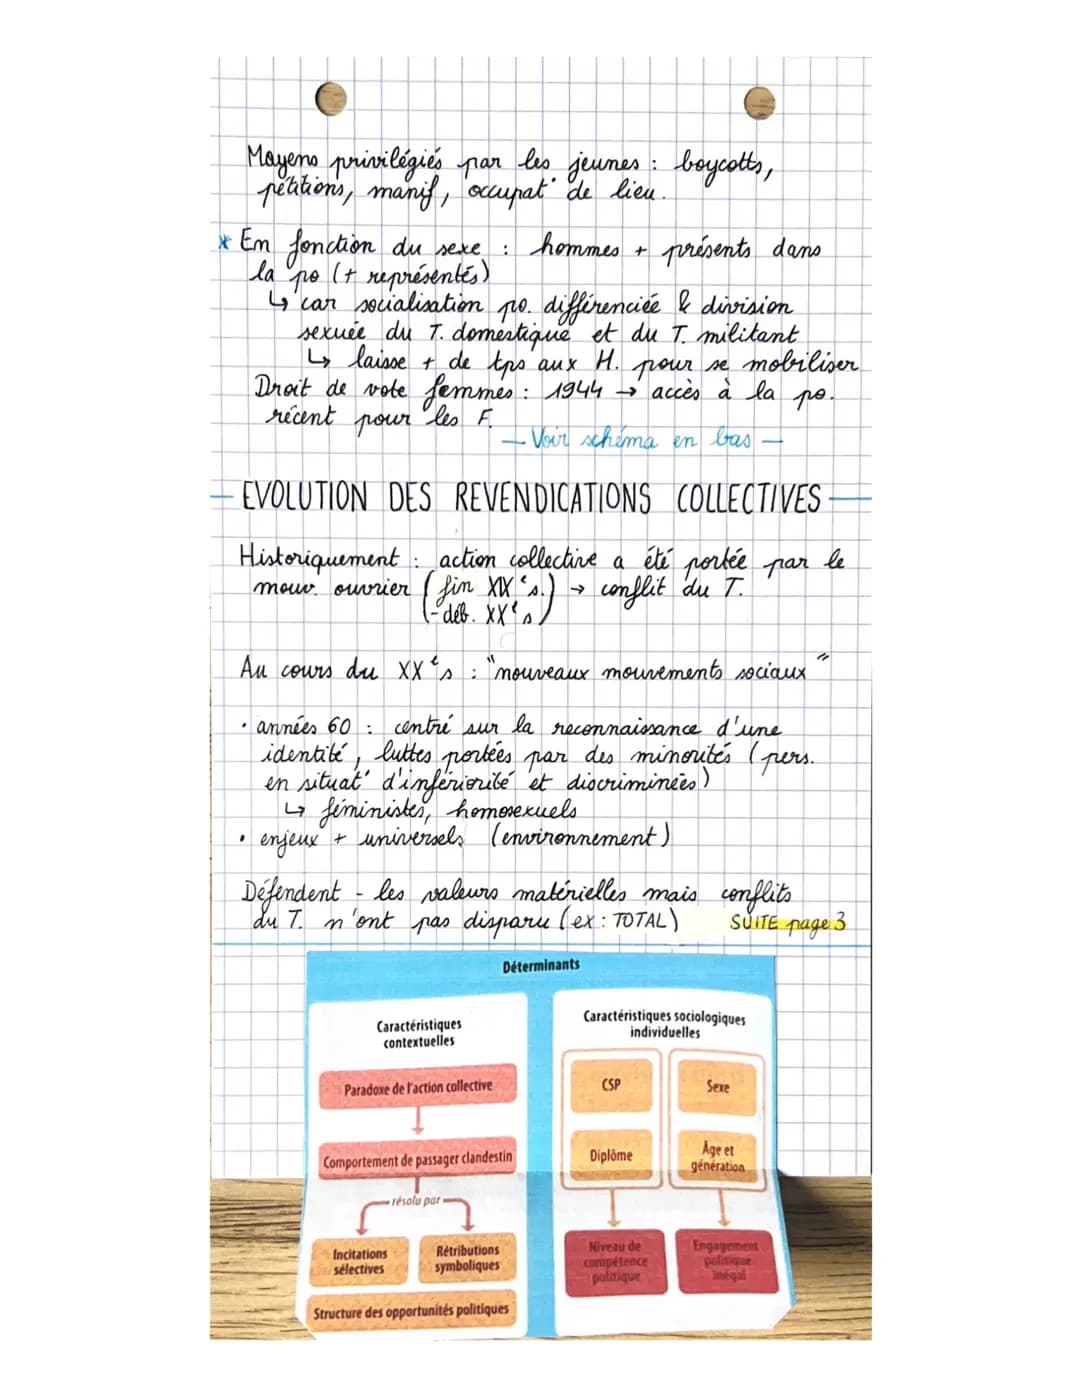 Moyens privilégiés par les jeunes : boycotts,
pétitions, manif, occupat° de lieu.
* En fonction du sexe : hommes + présents dans
la po (+ représentés)
↳ car socialisation po. différenciée & division
sexuée du T. domestique et du T. militant
↳ laisse + de tps aux H. pour se mobiliser
Droit de vote femmes : 1944 → accès à la po.
récent pour les F.
— Voir schéma en bas —
— EVOLUTION DES REVENDICATIONS COLLECTIVES —
Historiquement : action collective a été portée par le
mouv. ouvrier (fin XIXe s. → conflit du T.
- déb. XXe s)
Au cours du XXe s : "nouveaux mouvements sociaux"
• années 60 : centré sur la reconnaissance d'une
identité, luttes portées par des minorités (pers.
en situat° d'infériorité et discriminées)
↳ féministes, homosexuels
• enjeux + universels (environnement)
Défendent - les valeurs matérielles mais conflits
du T. n'ont pas disparu (ex : TOTAL) SUITE page 3
Déterminants
Caractéristiques
contextuelles
Paradoxe de l'action collective
Comportement de passager clandestin
résolu par
Incitations
sélectives
Rétributions
symboliques
Structure des opportunités politiques
Caractéristiques sociologiques
individuelles
CSP
Sexe
Diplôme
Âge et
génération
Niveau de
compétence
politique
Engagement
politique
inégal